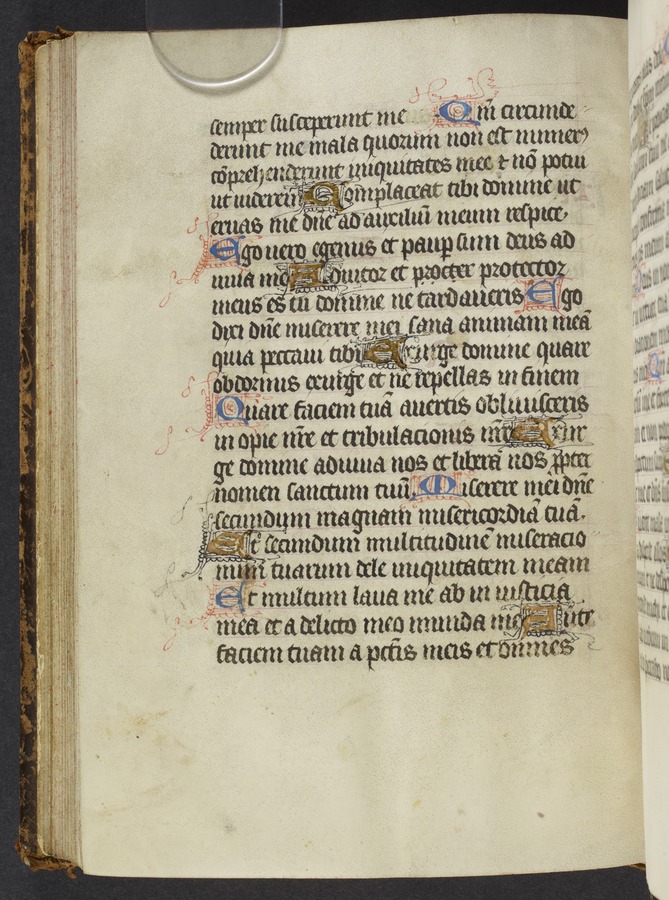 semper susceperunt me Qm̄ circumde
derunt me mala quorum non est numer9
cōprehenderunt iniquitates mee ⁊ nō potui
ut uiderem Complaceat tibi domine ut
eruas me dn̄e ad auxiliū meum respice.
Ego uero egenus et paup sum deus ad
iuua me Adiutor et procter protector
meus es tu domine ne tardaueris Ego
dixi dn̄e miserere mei sana animam meā
quia peccaui tibi Exurge domine quare
obdormis exurge et ne repellas in finem
Quare faciem tuā auertis obliuisceris
in opie nr̄e et tribulacionis nr̄e Exur
ge domine adiuua nos et libera nos ꝓpter
nomen sanctum tuū. Miserere mei dn̄e
secundum magnam misericordiā tuā.
Et secundum multitudinē miseracio
num tuarum dele iniquitatem meam
Et multum laua me ab in iusticia
mea et a delicto meo munda me Aute
faciem tuam a pctīs meis et omnes